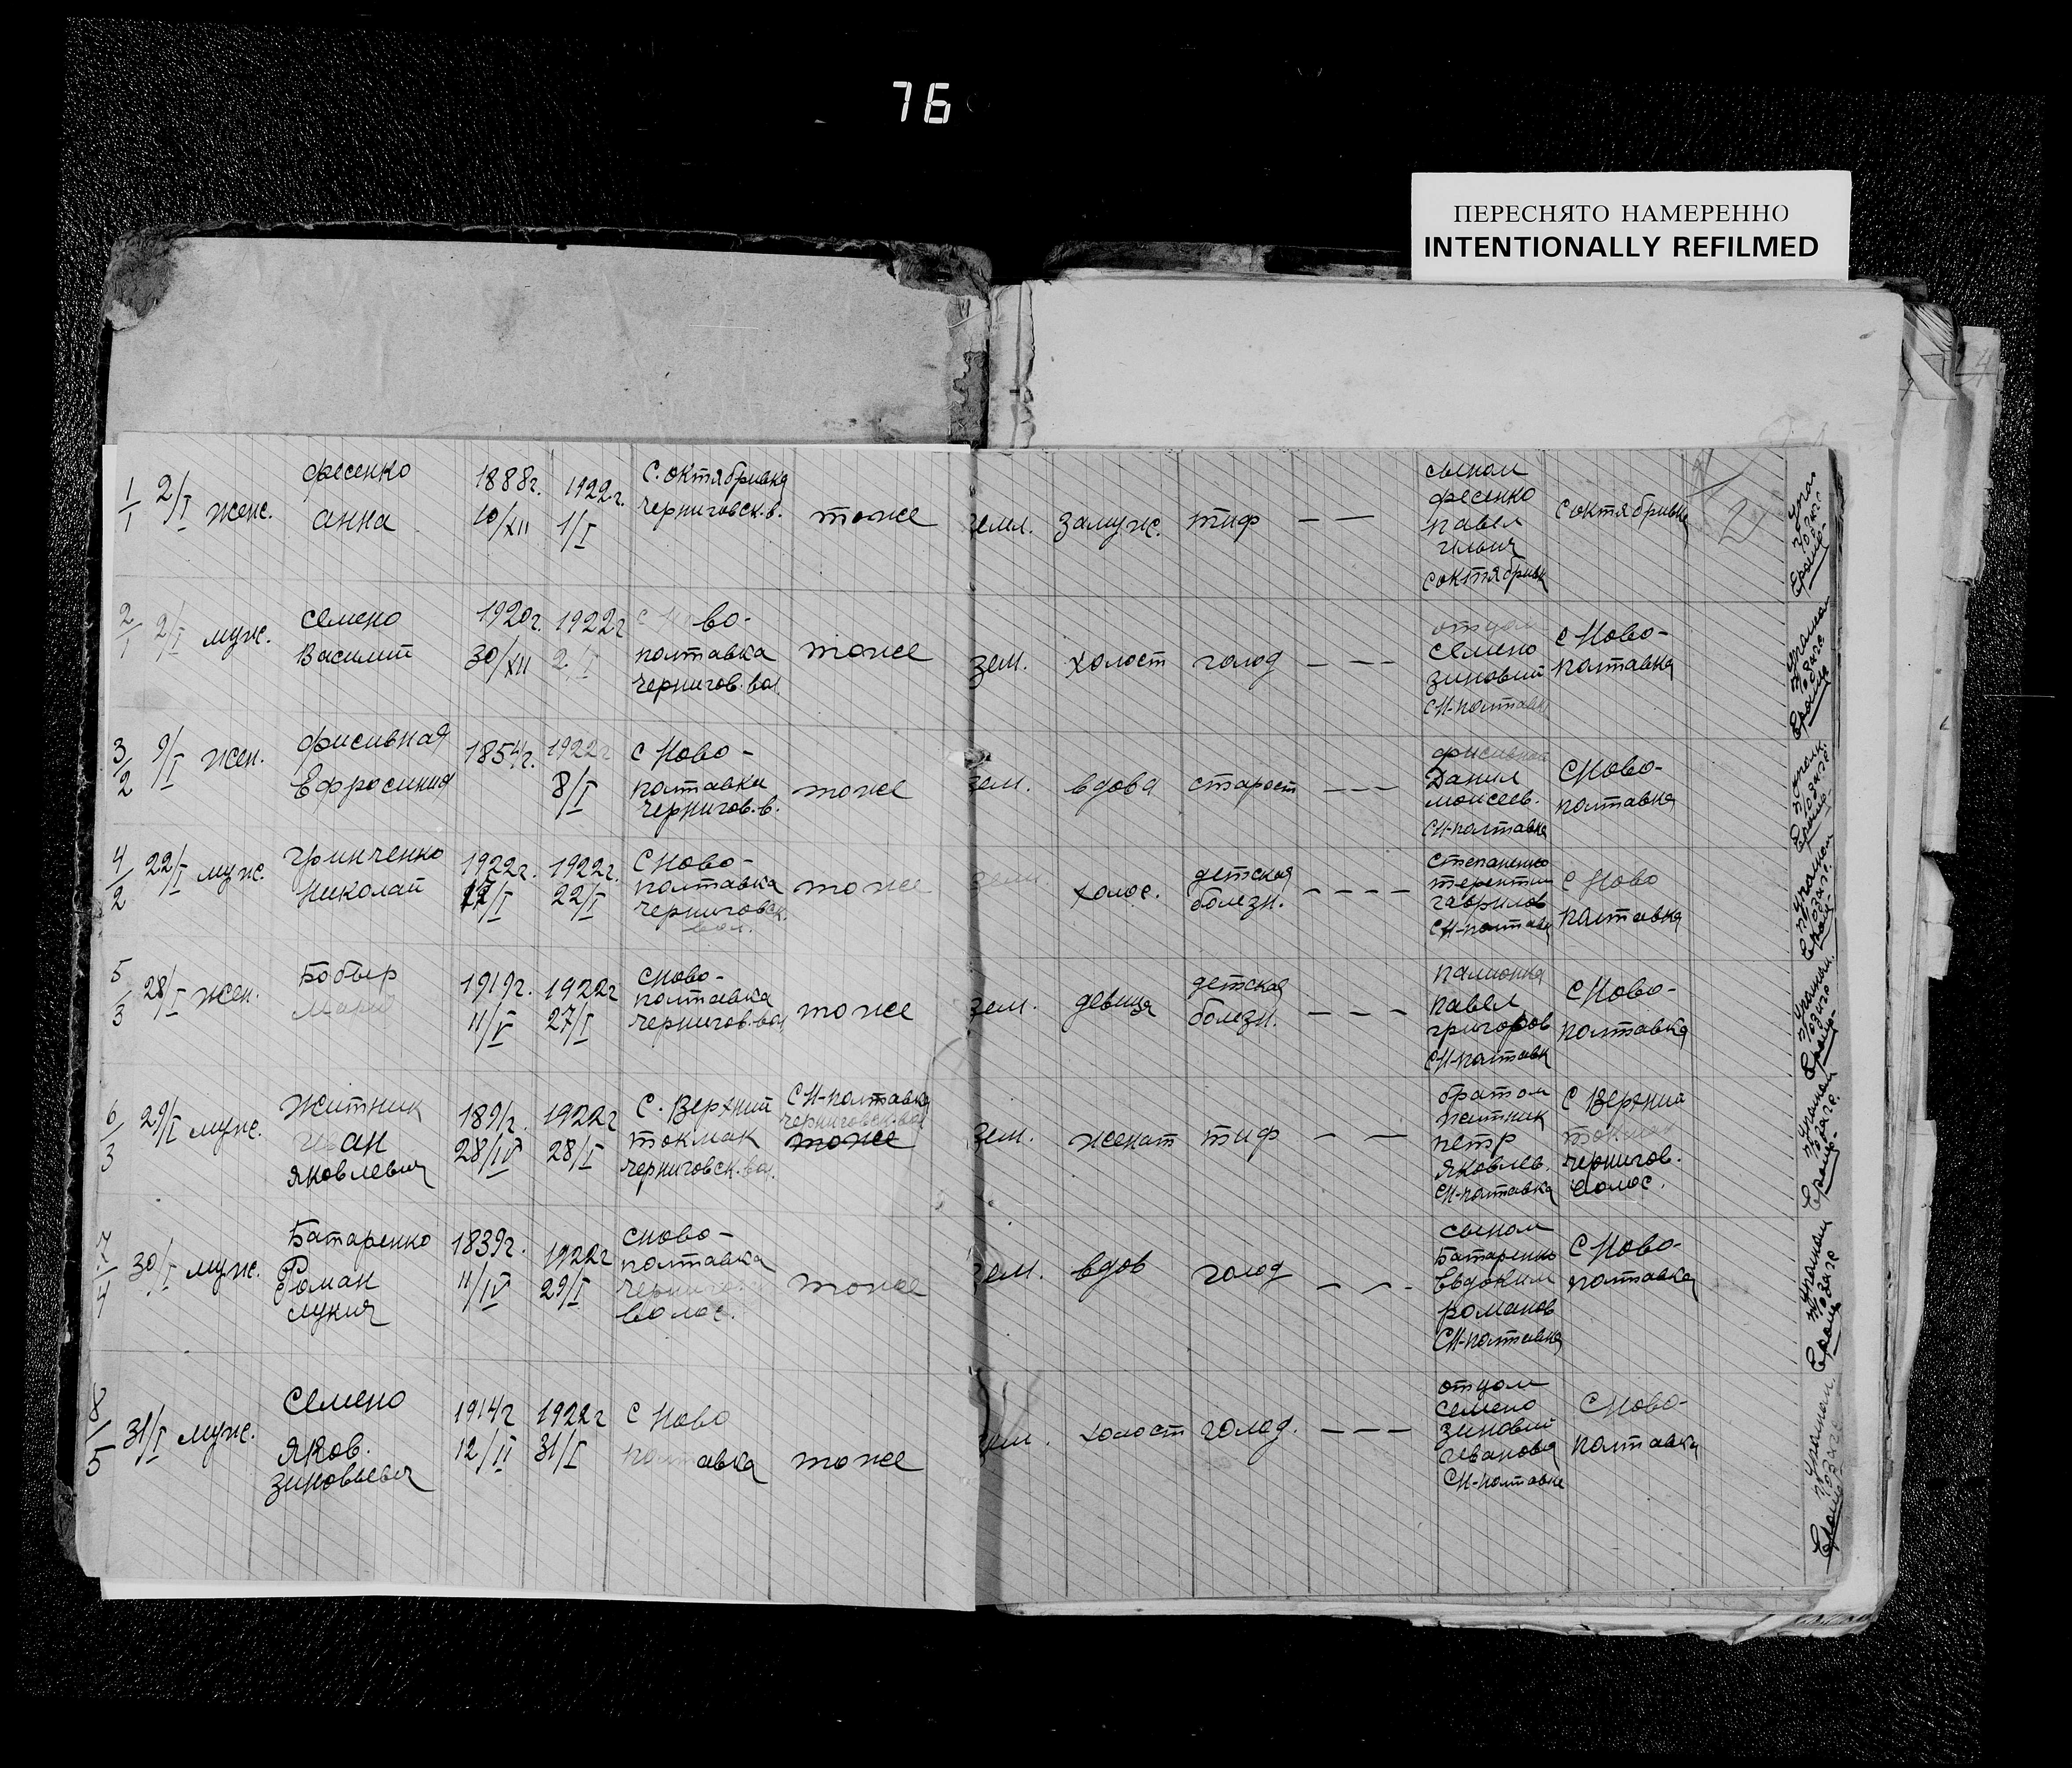 76
ПЕРЕСНЯТО НАМЕРЕННО
INTENTIONALLY REFILMED
4
2
1/1 2/I женс.
Фесенко
анна
1888г.
10/XII
1922г.
1/I
С. октябривка
Черниговск. в.
тоже
земл. замужс. тиф — —
сыном
фесенко
павел
ильич
С октябривк
С октябривка
2/1 2/I мужс.
семено
Василий
1920г.
30/XII
1922г
2/I
С Ново-
полтавка
Чернигов. вол
тоже
зем. холост голод — — —
отцом
семено
зиновий
СН-полтавка
С Ново-
полтавка
3/2 9/I жен.
фисивная
Ефросиния
1854г.
1922г
8/I
С Ново-
полтавка
Чернигов. в.
тоже
зем. вдова старост — — —
Данил
моисеев.
СН-полтавка
СНово-
полтавка
4/2 22/I мужс.
Гринченко
Николай
1922г.
17/I
1922г.
22/I
СНово-
полтавка
Черниговск.
вол.
тоже
зем. холос.
детская
болезн. — — — —
степаненко
терентий
гаврилов
СН-полтавк
С Ново
полтавка
5/3 28/I жен.
Бобыр
Мария
1919г.
11/V
1922г
27/I
Сново-
полтавка
Чернигов. вол
тоже
зем. девица
детская
болезн. — — —
павел
григоров
СН-полтавк
СНово-
полтавка
6/3 29/I мужс.
Житник
Иван
яковлевич
1891г.
28/IV
1922г
28/I
С. Верхний
токмак
Черниговск. вол.
СН-полтавка
Черниговск. вол
тоже
зем. женат тиф — —
братом
житник
петр
яковлев.
СН-полтавка
С Верхний
токмак
Чернигов.
волос.
7/4 30/I мужс.
Батаренко
Роман
лукич
1839г.
11/IV
1922г
29/I
Сново-
полтавка
волос.
тоже
зем. вдов голод — — —
сыном
Батаренко
Евдоким
романов
СН-полтавка
СНово-
полтавка
8/5 31/I мужс.
Семено
яков.
зиновьевич
1914г
12/II
1922г
31/I
С Ново
полтавка
тоже
зем. холост голод. — — —
отцом
семено
зиновий
иванова
СН-полтавке
СНово-
полтавка